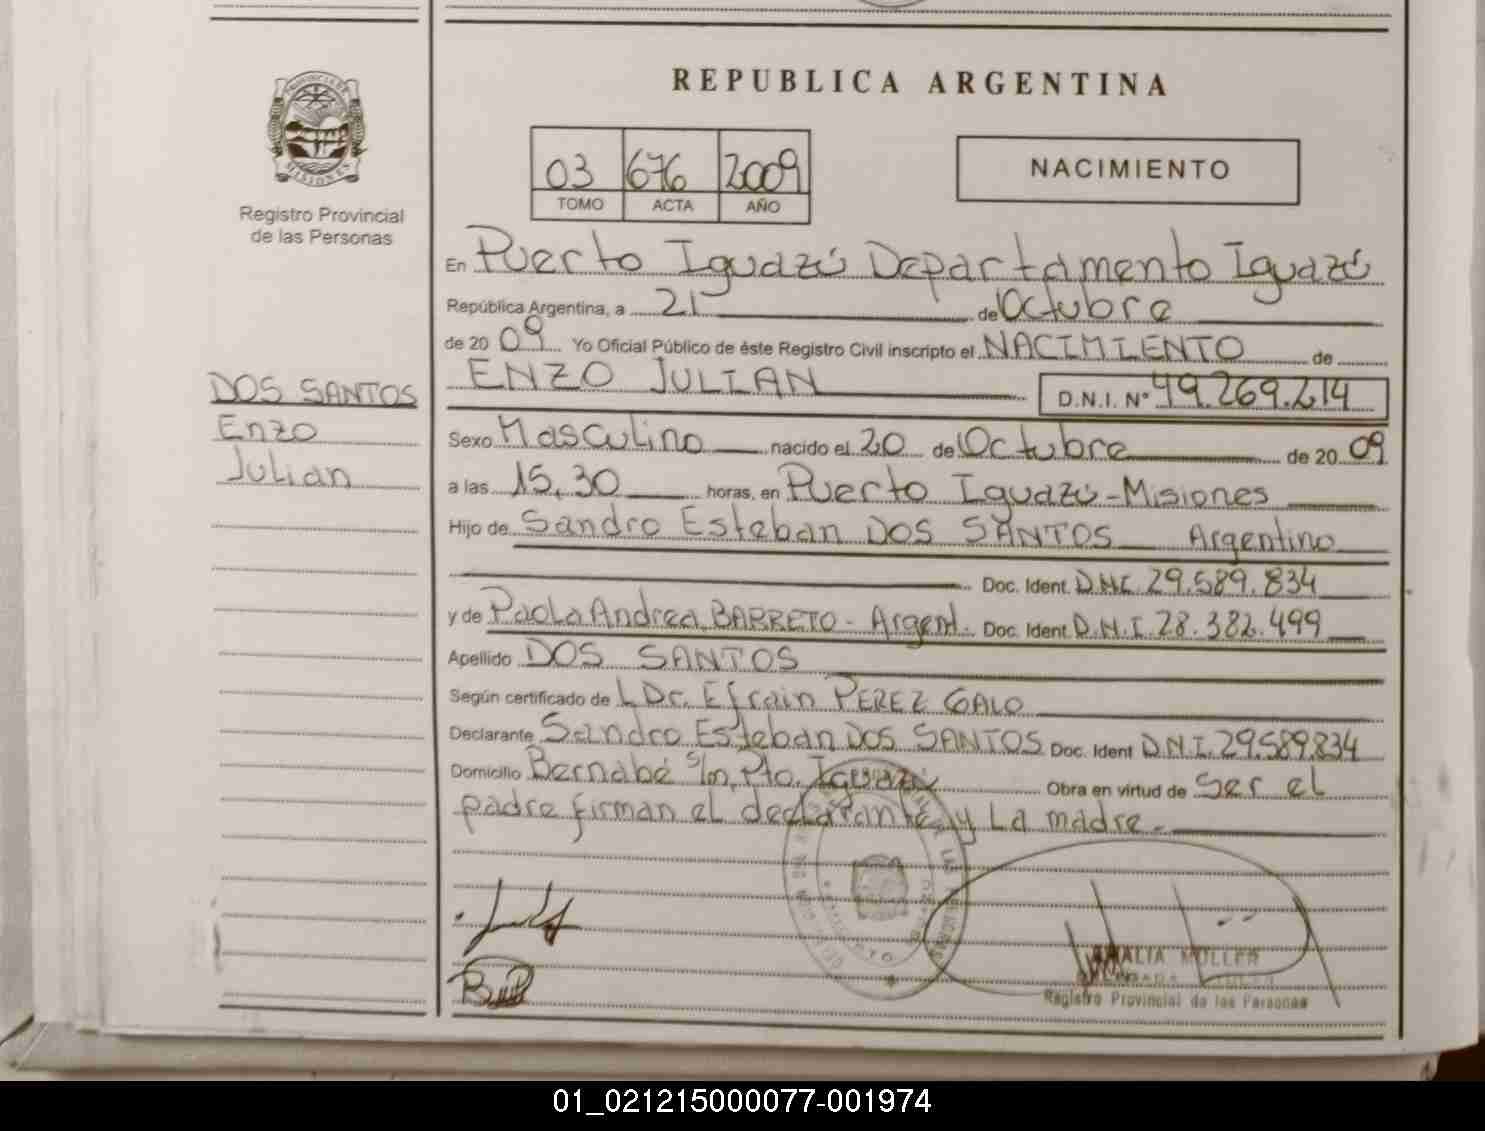 REPUBLICA ARGENTINA
MISIONES
03 676 2009
TOMO ACTA AÑO
NACIMIENTO
Registro Provincial
de las Personas
En Puerto Iguazú Departamento Iguazú
República Argentina, a 21 de Octubre
de 20 09 Yo Oficial Público de éste Registro Civil inscripto el NACIMIENTO de
ENZO JULIAN D.N.I. N° 49.269.214
DOS SANTOS
Enzo
Julian
Sexo Masculino nacido el 20 de Octubre de 20 09
a las 15,30 horas, en Puerto Iguazú - Misiones
Hijo de Sandro Esteban DOS SANTOS Argentino
Doc. Ident. D.N.I. 29.589.834
y de Paola Andrea BARRETO - Argent. Doc. Ident. D.N.I. 28.382.499
Apellido DOS SANTOS
Según certificado de L Dr. Efrain PEREZ GALO
Declarante Sandro Esteban DOS SANTOS Doc. Ident D.N.I. 29.589.834
Domicilio Bernabé s/n, Pto. Iguazú Obra en virtud de Ser el
padre firman el declarante y La madre.-
MULLER
Registro Provincial de las Personas
01_021215000077-001974